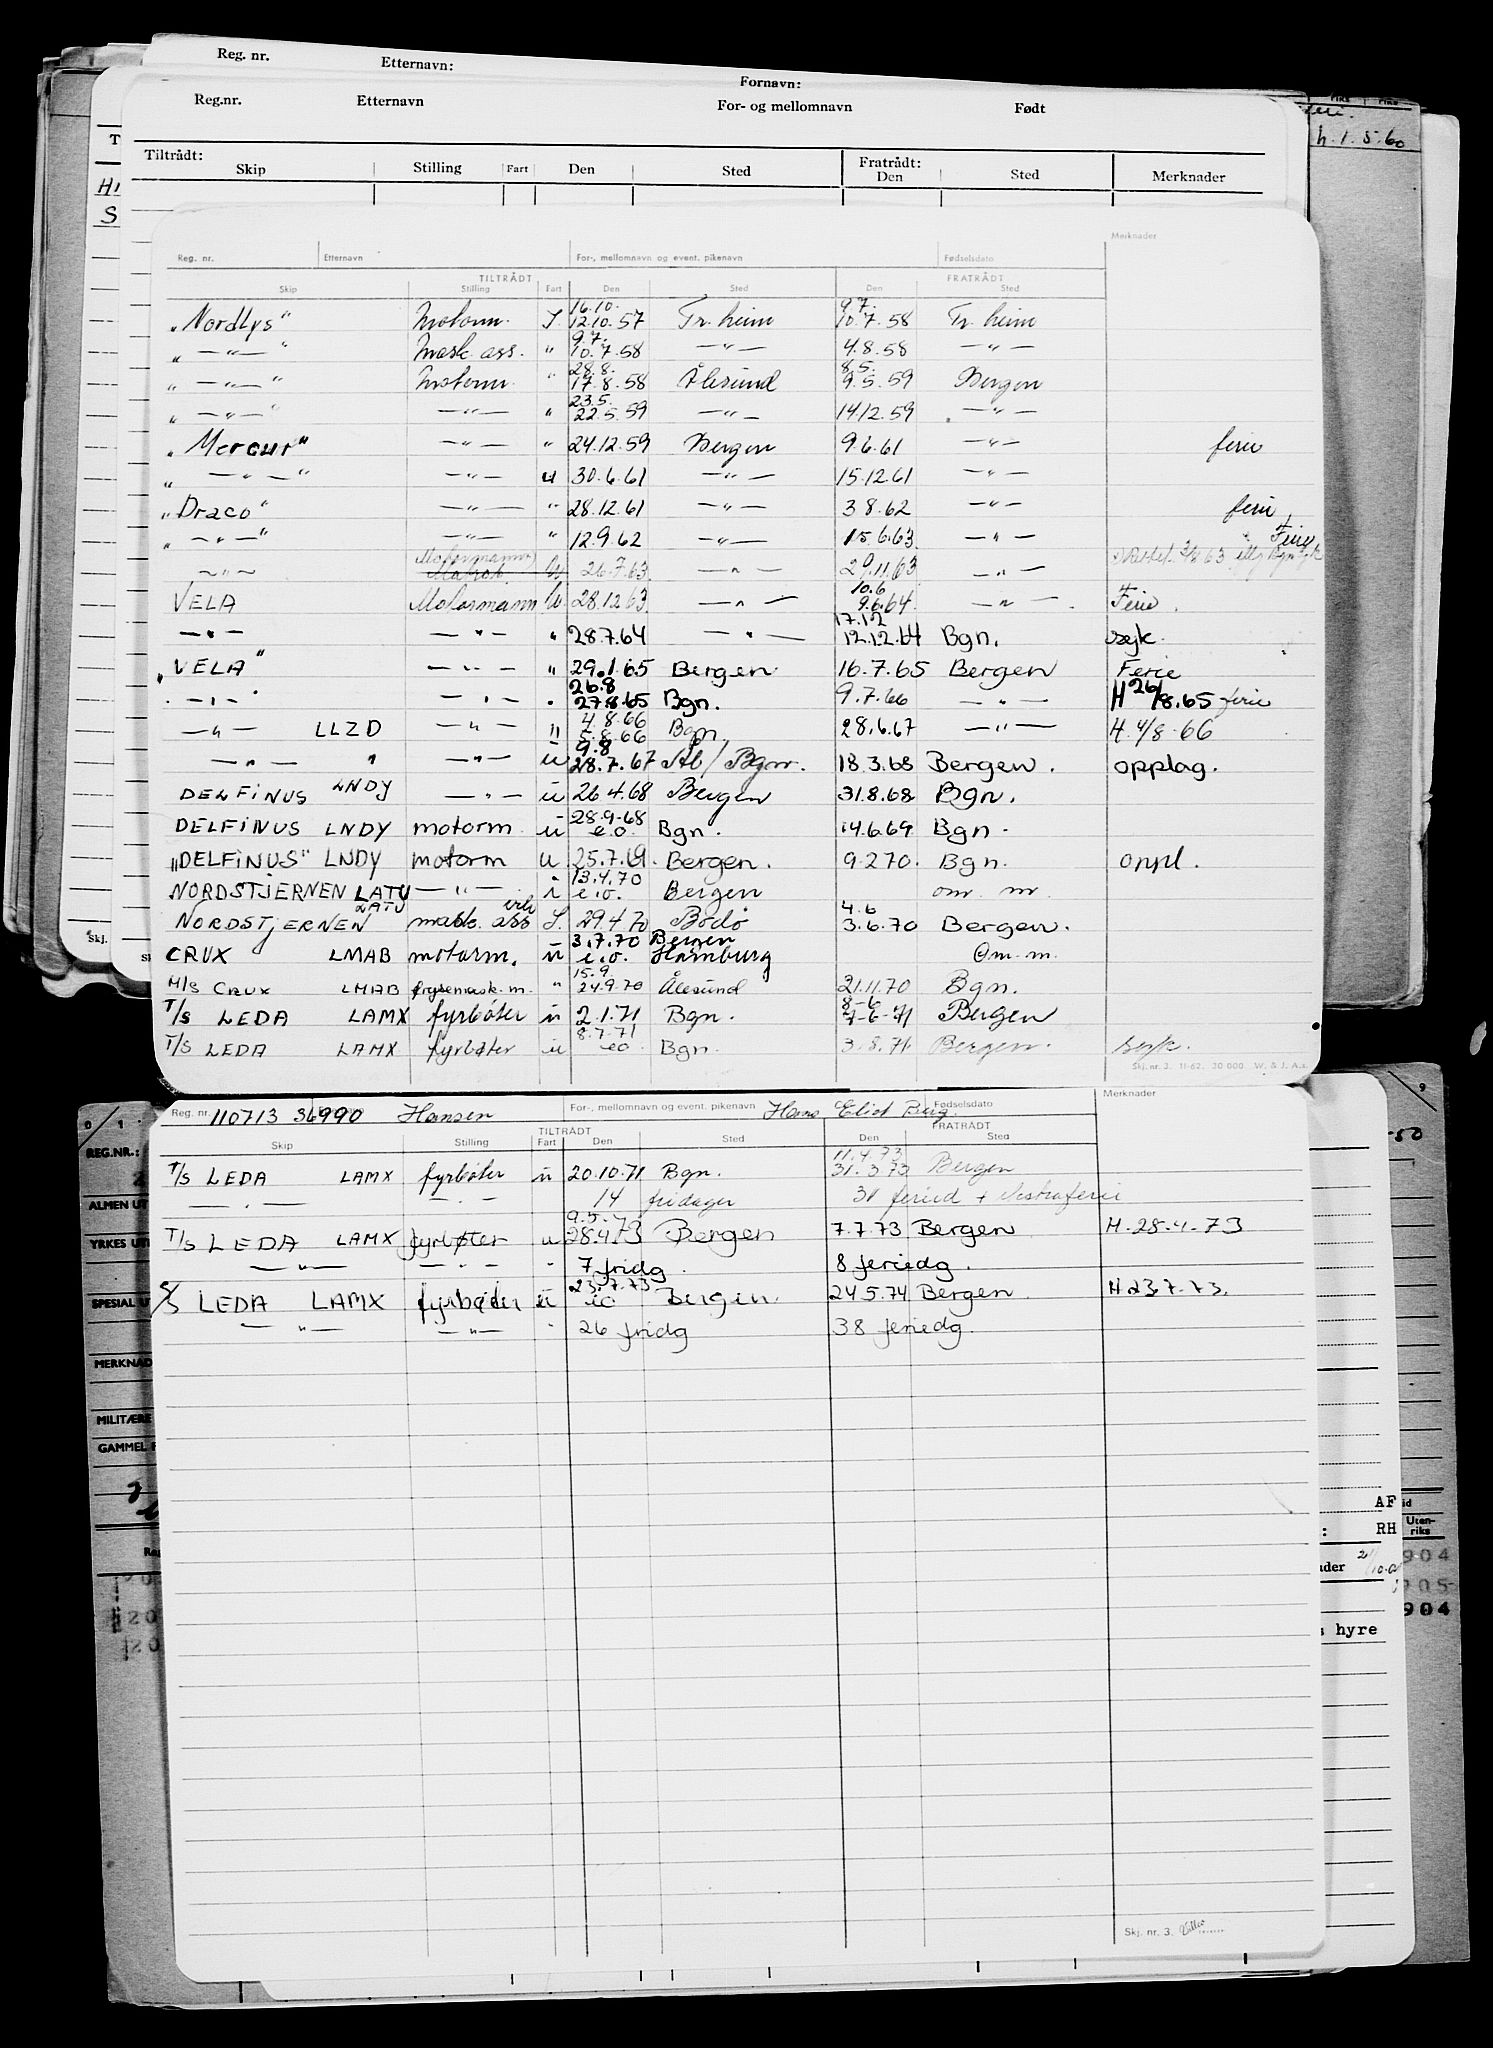 Reg. nr. Etternavn: Fornavn:
Reg.nr. Etternavn For- og mellomnavn Født
h. 1.5.60
Tiltrådt: Fratrådt:
Skip Stilling Fart Den Sted Den Sted Merknader
Merknader
Reg. nr. Etternavn For-, mellomnavn og event. pikenavn Fødselsdato
TILTRÅDT FRATRÅDT
Skip Stilling Fart Den Sted Den Sted
16.10. 9.7.
"Nordlys" Motorm. S. 12.10.57 Tr.heim 10.7.58 Tr.heim
9.7.
" — " — " Mask. ass. " 10.7.58 — " — 4.8.58 — " —
28.8. 8.5.
" — " — " Motorm. " 17.8.58 Ålesund 9.5.59 Bergen
23.5.
" — " — " — " — " 22.5.59 — " — 14.12.59 — " —
"Mercur" — " — " 24.12.59 Bergen 9.6.61 — " — ferie
" — " — " — " — u 30.6.61 — " — 15.12.61 — " —
"Draco" — " — " 28.12.61 — " — 3.8.62 — " — ferie
" — " — " — " — " 12.9.62 — " — 15.6.63 — " — Ferie
Motormann
— " — Matros. U. 26.7.63 — " — 29.11.63 — " —
10.6
VELA Motormann U. 28.12.63 — " — 9.6.64 — " — Ferie.
17.12
— " — — " — " 28.7.64 — " — 12.12.64 Bgn. sejk.
"VELA" — " — " 29.1.65 Bergen 16.7.65 Bergen Ferie
26.8
" — " — " — " — " 27.8.65 Bgn. 9.7.66 — " — H 26/8.65 ferie
4.8.66
— " — LLZD — " — " 5.8.66 Bgn. 28.6.67 — " — H. 4/8-66
9.8
— " — " — " — u 28.7.67 Ål/Bgn. 18.3.68 Bergen. opplag.
DELFINUS LNDY — " — u 26.4.68 Bergen 31.8.68 Bgn.
28.9-68
DELFINUS LNDY motorm u e.o. Bgn. 14.6.69 Bgn.
"DELFINUS" LNDY motorm u 25.7.69. Bergen. 9.2 70. Bgn. oppl.
13.4.70
NORDSTJERNEN LATU — " — i e.o. Bergen om. m.
LATU 4.6
NORDSTJERNEN mask. ass S. 29.4.70 Bodø 3.6.70 Bergen.
3.7.70 Bergen
CRUX LMAB motorm. u e.o. Hamburg Om. m.
15.9
M/S CRUX LMAB frysemask.m. " 24.9.70 Ålesund 21.11.70 Bgn.
8-6
T/S LEDA LAMX fyrbøter u 2.1.71 Bgn. 7-6-71 Bergen
8.7-71
T/S LEDA LAMX fyrbøter u eo. Bgn. 3.8.71. Bergen. sejk.
Skj. nr. 3. 11-62. 30 000 W. & J. A.s.
Reg. nr. 110713 36990 Hansen For-, mellomnavn og event. pikenavn Hans Eliot Berg. Fødselsdato Merknader
TILTRÅDT FRATRÅDT
Skip Stilling Fart Den Sted Den Sted
11.4.73
T/S LEDA LAMX fyrbøter u 20.10.71 Bgn. 31.3.73 Bergen
— " — — " — 14 fridager 31 feried + ekstraferie
9.5.73
T/S LEDA LAMX fyrbøter u 28.4.73 Bergen 7.7.73 Bergen H-28-4-73
— " — — " — " 7 fridg. 8 feriedg.
23.7.73
S/S LEDA LAMX fyrbøter u eo Bergen. 24.5.74 Bergen H 23.7.73.
— " — — " — " 26 fridg 38 feriedg.
REG.NR.:
MILITÆRE
AF
RH
Uten-
riks
904
905-
904
hyre
Skj. nr. 3.